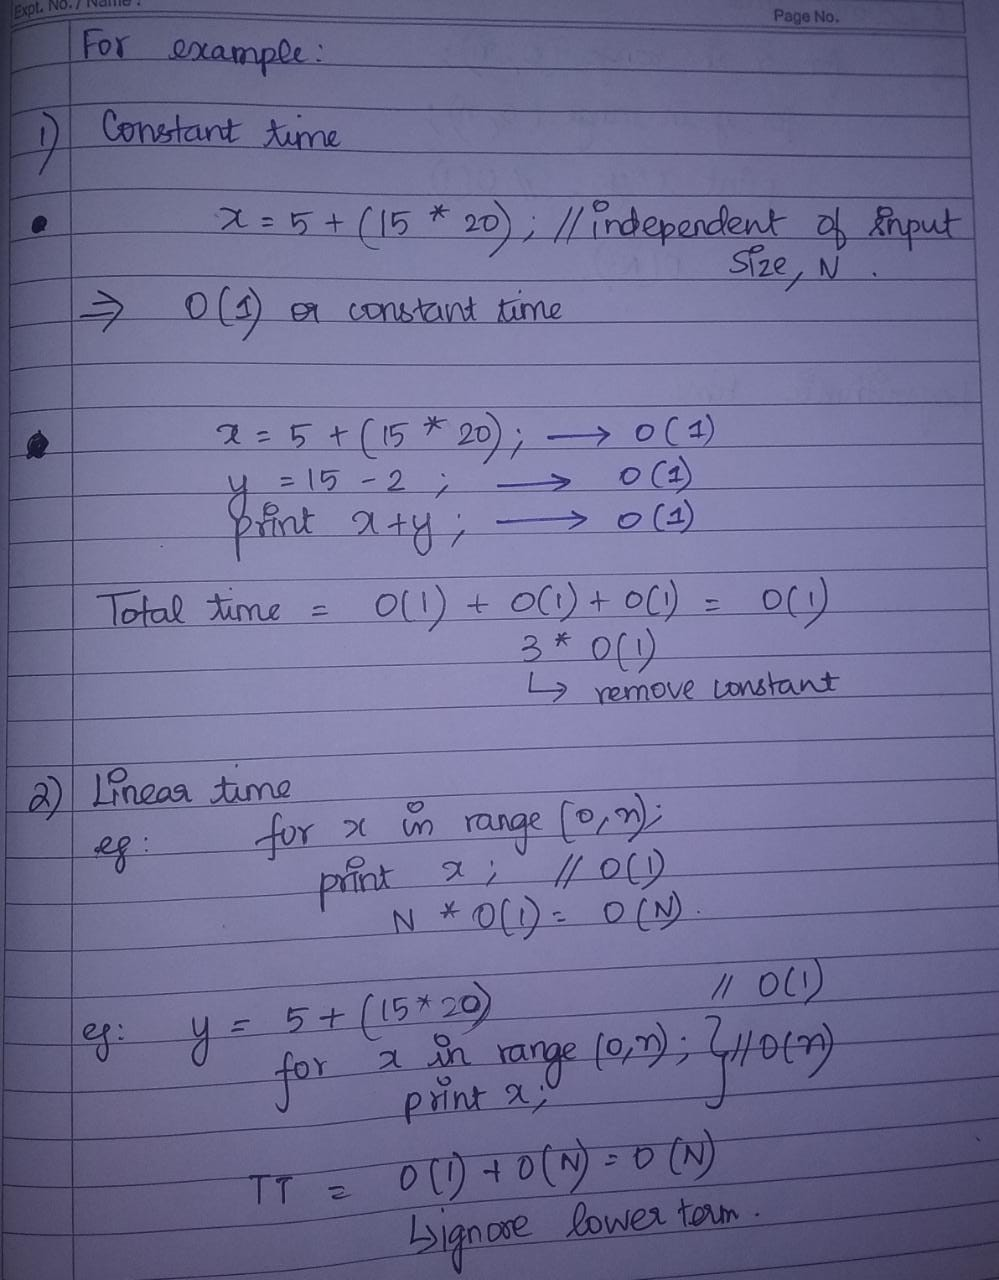 Expt. No. / Name :
Page No.
For example:
1) Constant time
x = 5 + (15 * 20); // independent of input
size, N .
⇒ O(1) or constant time
x = 5 + (15 * 20); → O(1)
y = 15 - 2 ; → O(1)
print x+y ; → O(1)
Total time = O(1) + O(1) + O(1) = O(1)
3 * O(1)
↳ remove constant
2) Linear time
eg: for x in range (0,n);
print x ; // O(1)
N * O(1) = O(N).
eg: y = 5 + (15*20) // O(1)
for x in range (0,n); } // O(n)
print x;
TT = O(1) + O(N) = O(N)
↳ ignore lower term .